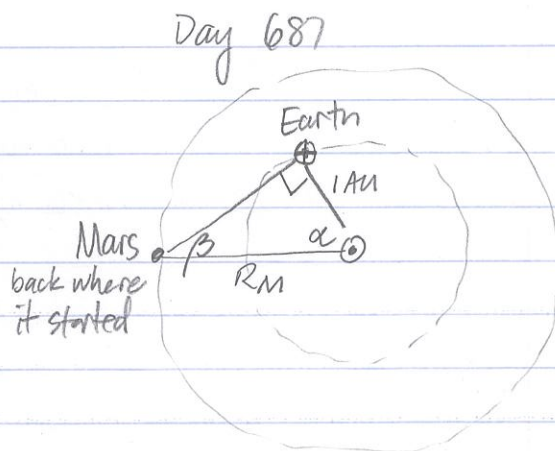 Day 687
Earth
⊕
1AU
α
☉
Mars
β
R_M
back where
it started